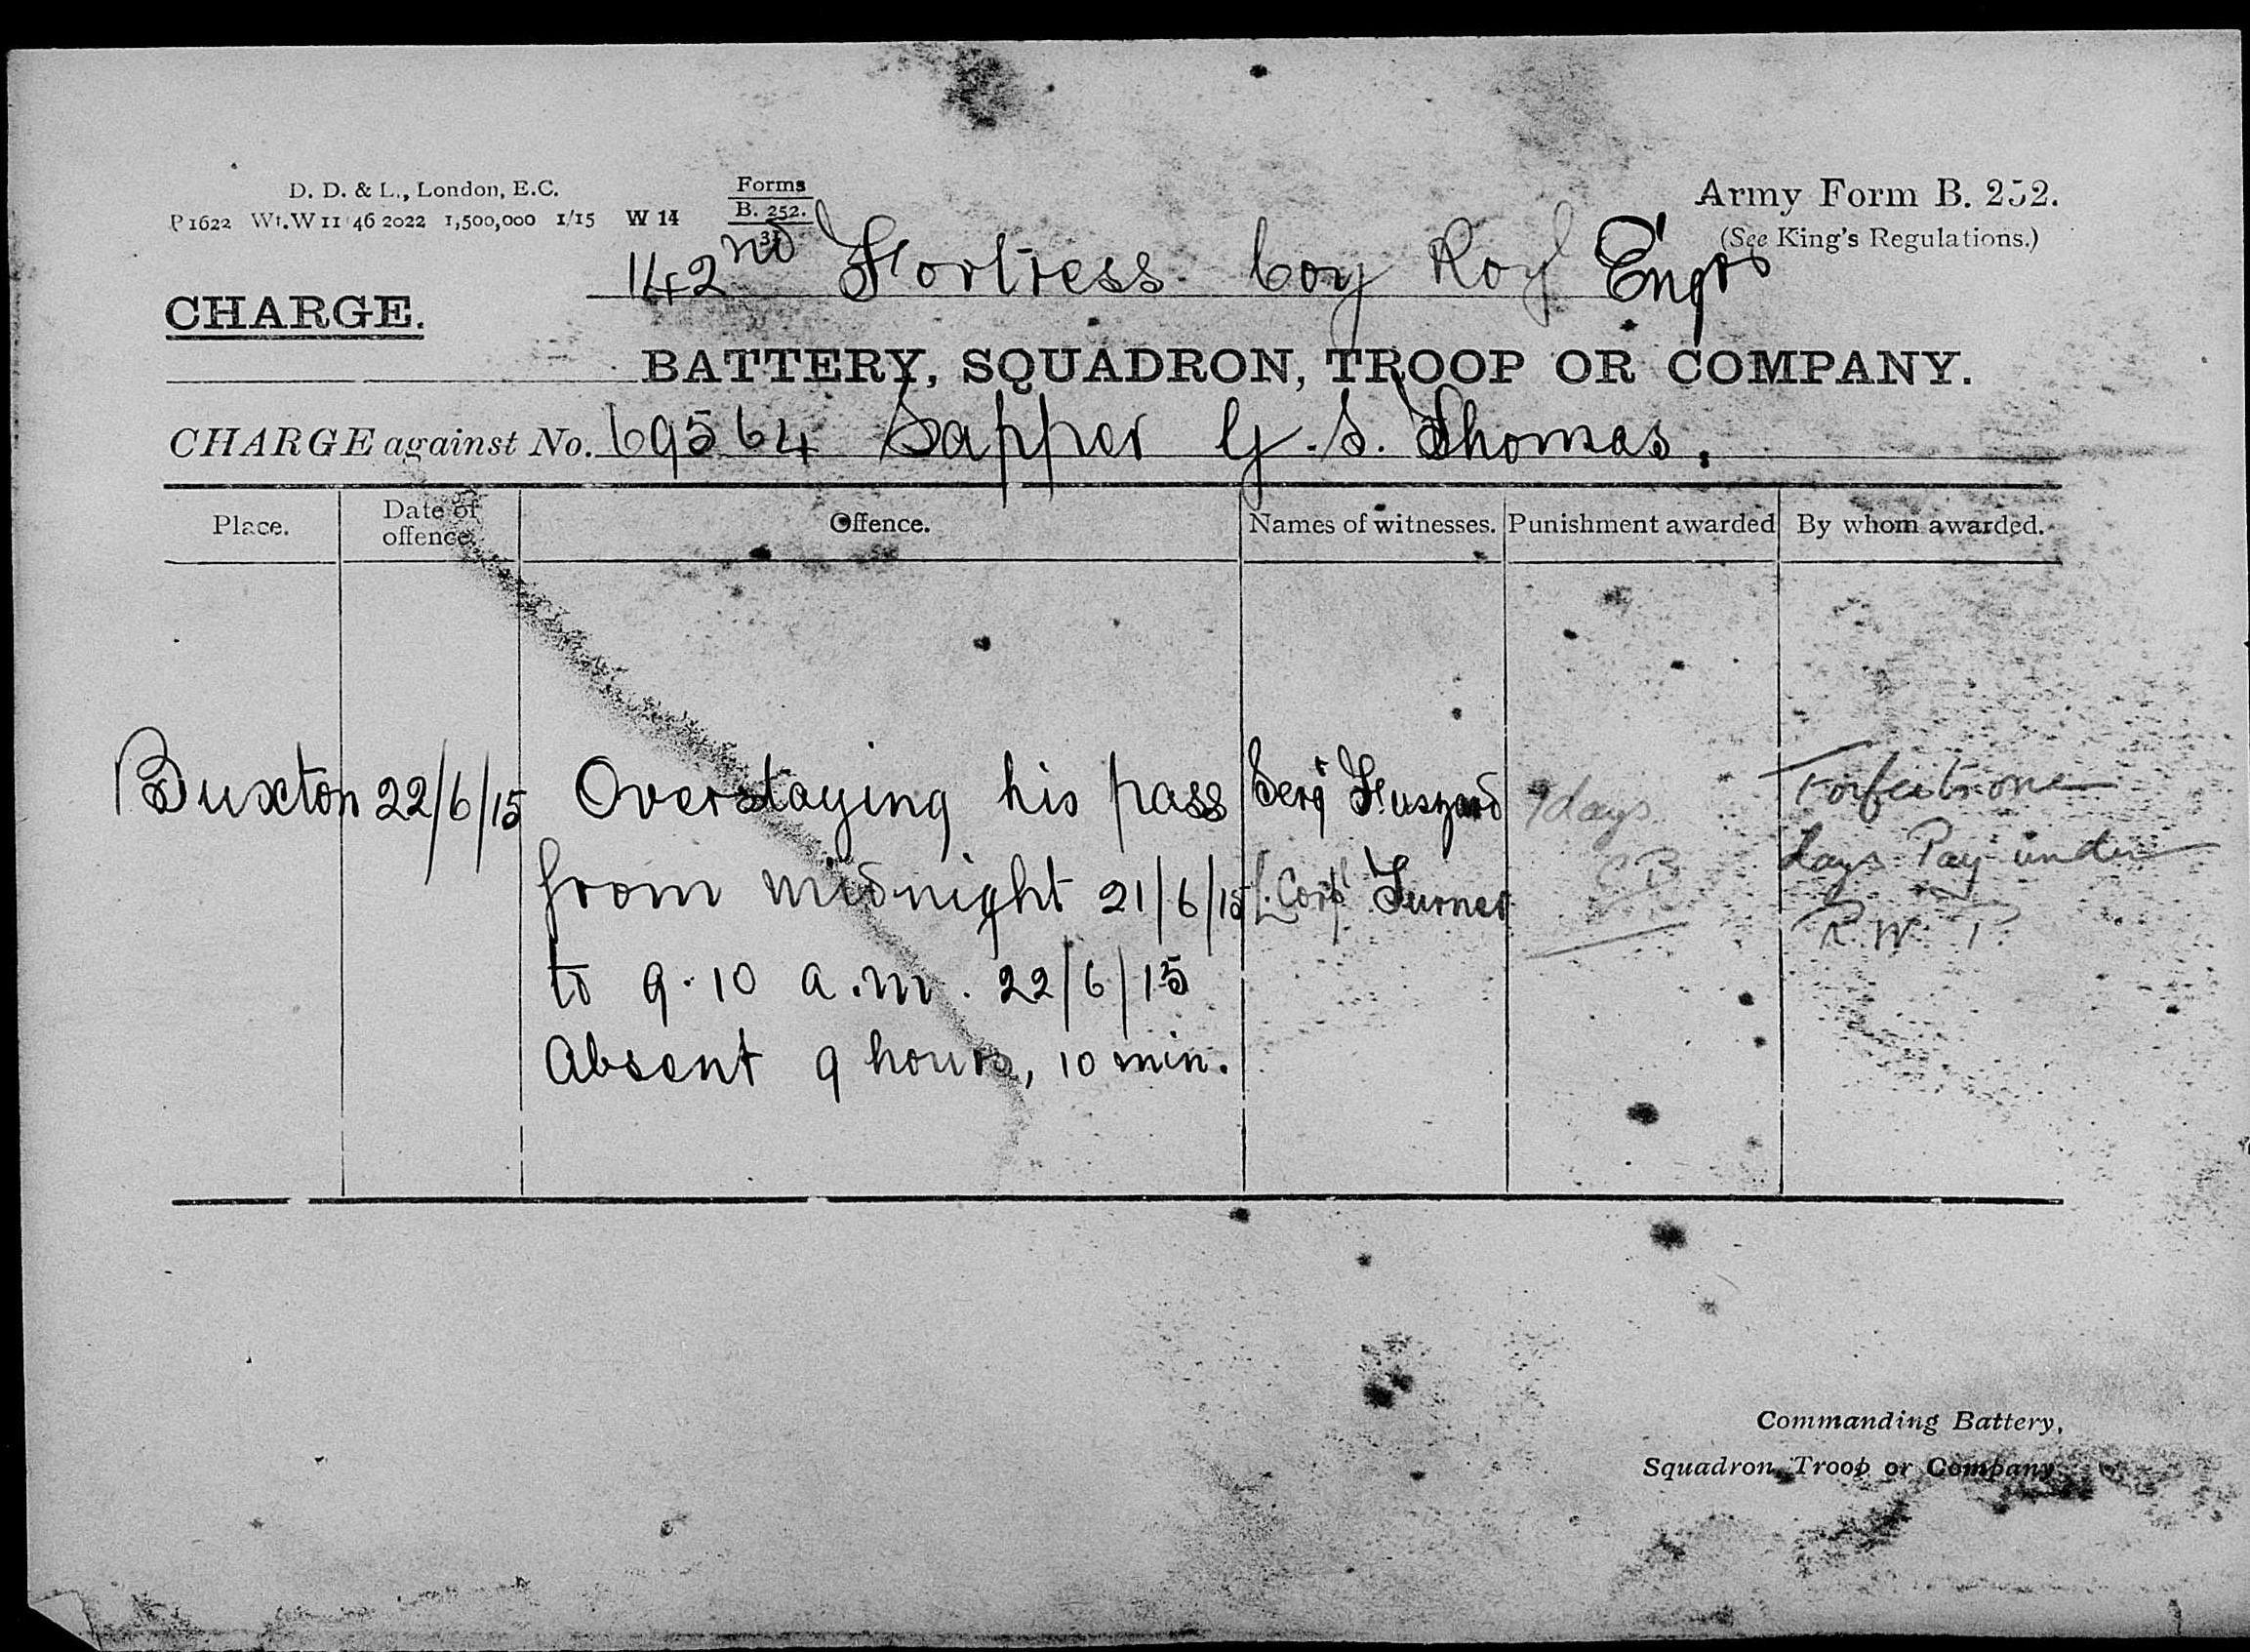 D. D. & L., London, E.C.
P 1622 Wt. W 11 46 2022 1,500,000 1/15 W 14
Forms
B. 252.
31
Army Form B. 252.
(See King's Regulations.)
142nd Fortress Coy Roy Engrs
CHARGE.
BATTERY, SQUADRON, TROOP OR COMPANY.
CHARGE against No. 69564 Sapper G. S. Thomas.
Place. Date of offence. Offence. Names of witnesses. Punishment awarded By whom awarded.
Buxton 22/6/15 Overstaying his pass Sergt 9 days Forfeits one
from midnight 21/6/15 L. Corpl Turner C B days Pay under
to 9.10 a.m. 22/6/15 R. W. P.
Absent 9 hours, 10 min.
Commanding Battery,
Squadron, Troop or Company